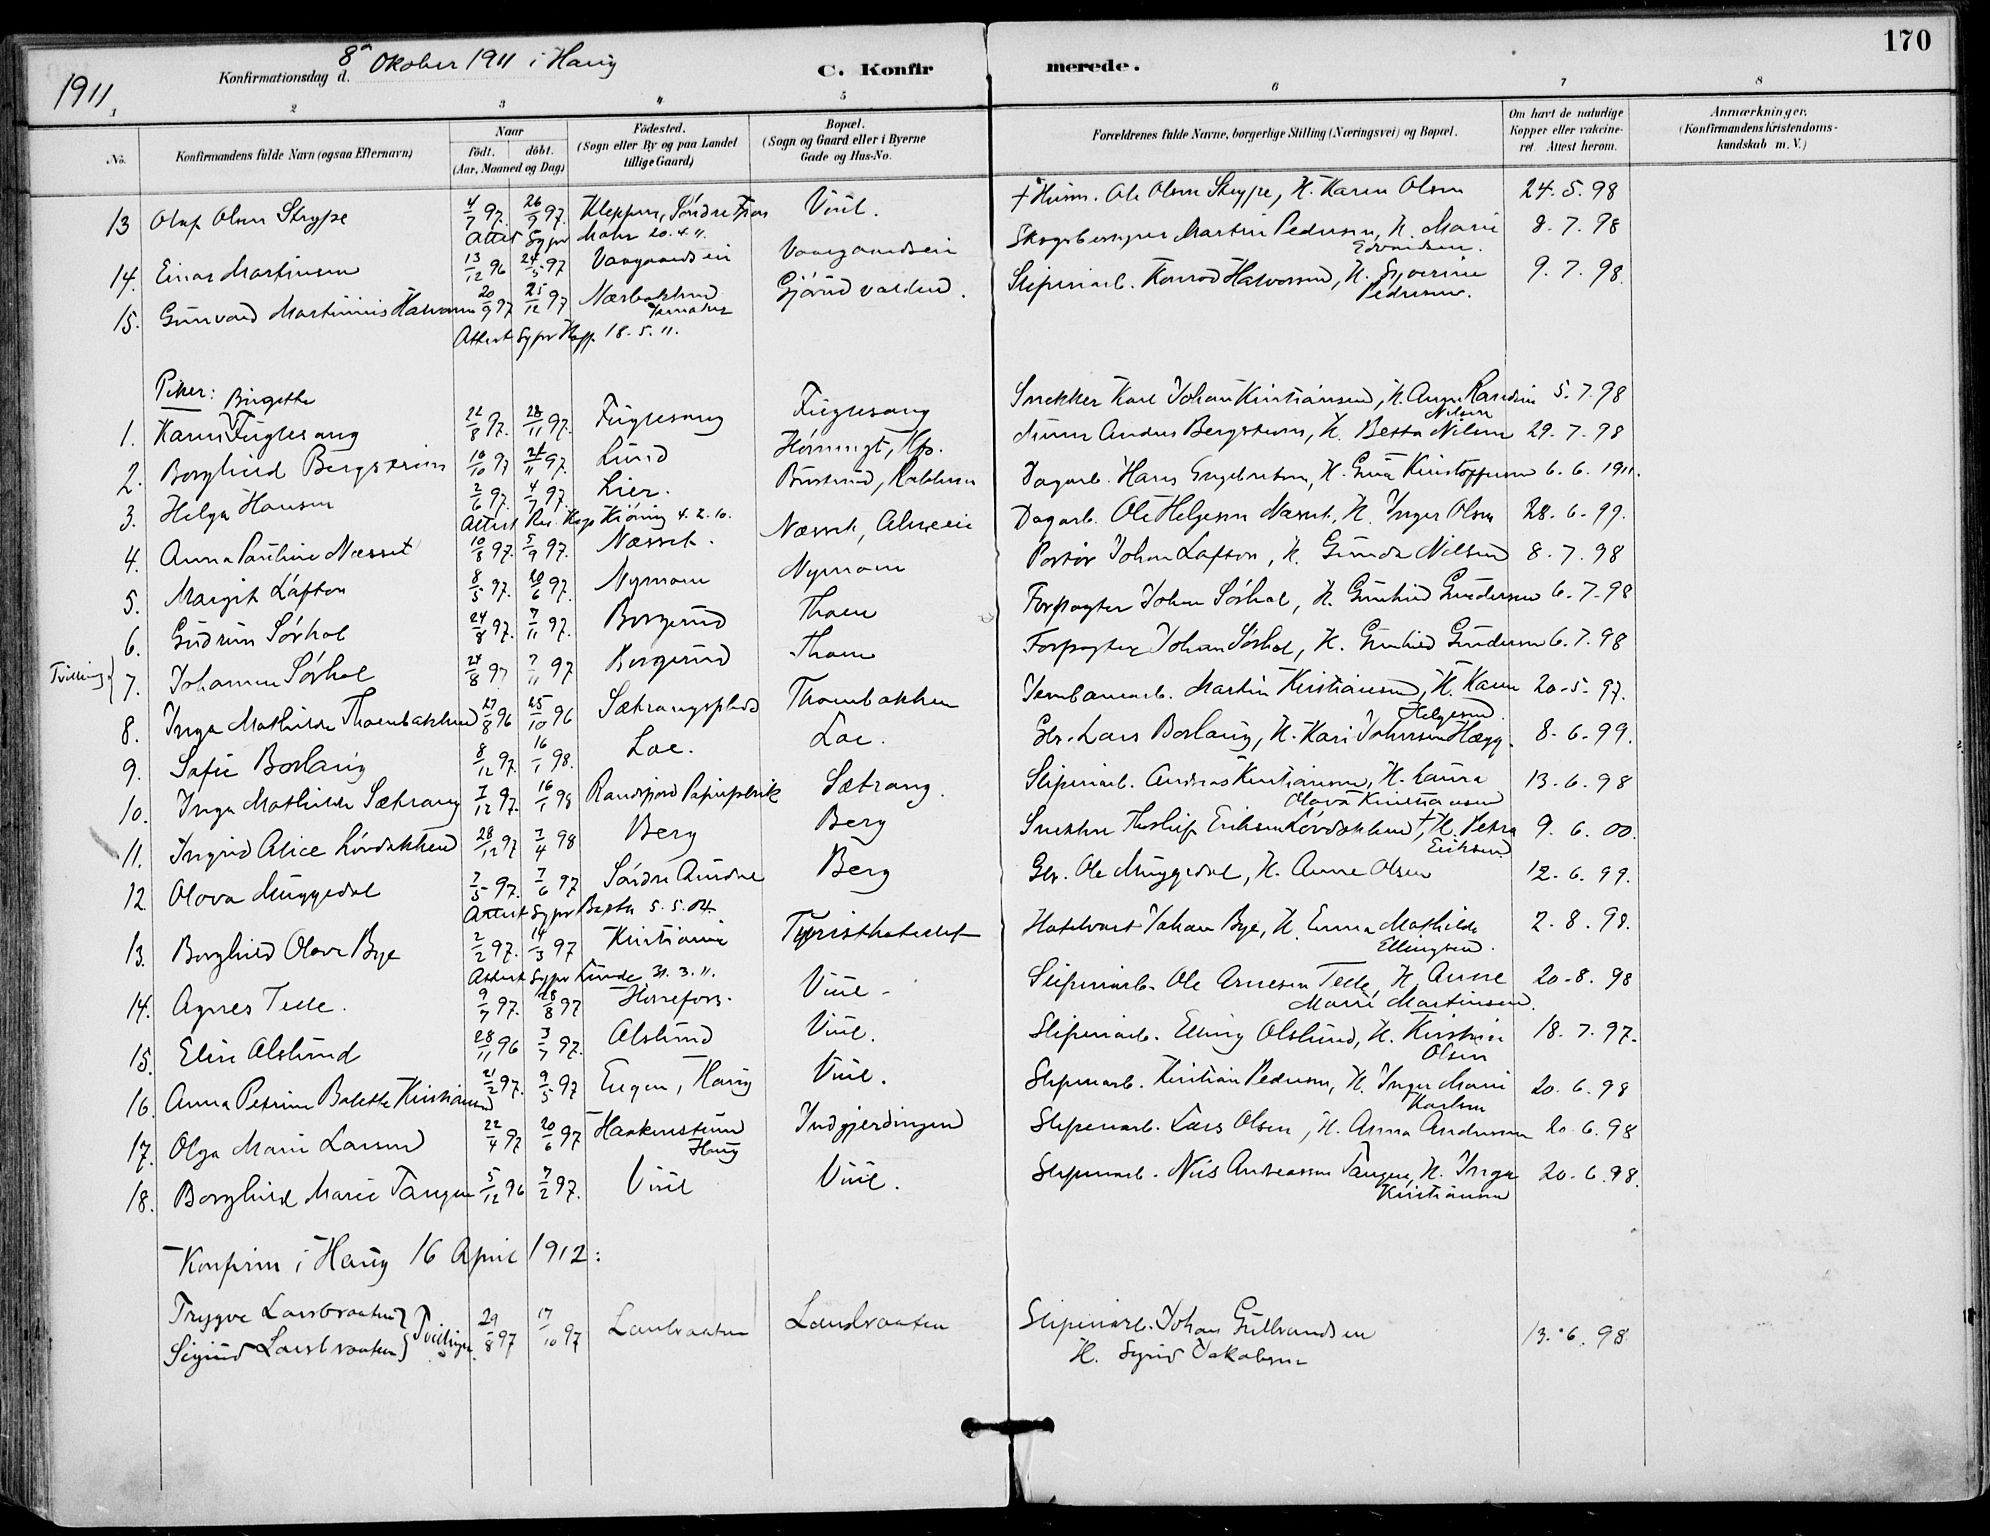 170
1911
Konfirmationsdag d. 8de Oktober 1911 i Haug
C. Konfirmerede.
1 2 3 4 5 6 7 8
No.
Konfirmandens fulde Navn (ogsaa Efternavn)
Naar
födt. döbt.
(Aar, Maaned og Dag)
Födested.
(Sogn eller By og paa Landet tillige Gaard)
Bopæl.
(Sogn og Gaard eller i Byerne Gade og Hus-No.
Forældrenes fulde Navne, borgerlige Stilling (Næringsvei) og Bopæl.
Om havt de naturlige Kopper eller vakcineret. Attest herom.
Anmærkninger.
(Konfirmandens Kristendomskundskab m. V.)
13 Olaf Olsen Strype 4/7 97. 26/9 97. Kleppen, Söndre Viul. † Husm. Ole Olsen Strype, H. Karen Olsen 24.5.98
Attest Sgpr Mohr 20.4.11.
14. Einar Martinsen 13/12 96 24/5 97 Vaagaardseie Vaagaardseie Martin Pedersen, H. Marie 8.7.98
15. Gunvald Martinius Halvorsen 20/9 97 25/12 97 Gjörudvalded. Sliperiarb. Konrad Halvorsen, H. Syverine Pedersen. 9.7.98.
Attest Sgpr Hopp 18.5.11.
Piker:
1. Karen Birgitte Fuglesang 22/8 97. 28/11 97. Fuglesang Fuglesang Snekker Karl Johan Kristiansen, H. Anne Randine Nilsen 5.7.98
2. Borghild Bergström 10/10 97 21/11 97. Lund Hönengt, Hfs. Anders Bergström, H. Betta Nilsen 29.7.98
3. Helga Hansen 2/6 97. 4/7 97. Lier. Busterud, Dagarb. Hans Engebretsen, H. Kristoffersen 6.6.1911.
Attest Res. Kap. Kjöning 4.2.10.
4. Anna Pauline Næsset 10/8 97. 5/9 97. Næsset. Næsset, Dagarb. Ole Helgesen Næsset, H. Inger Olsen 28.6.99.
5. Margit Lafton 8/5 97. 20/6 97. Nymoen Nymoen Portör Johan Lafton, H. Gunda Nilsen 8.7.98
6. Gudrun Sörhol 24/8 97. 7/11 97. Borgerud Thoen Forpagter Johan Sörhol, H. Gunhild Gundersen 6.7.98
Tvilling 7. Johanne Sörhol 24/8 97 7/11 97 Borgerud Thoen Forpagter Johan Sörhol, H. Gunhild Gundersen 6.7.98
8. Inga Mathilde Thoenbakken 27/8 96 25/10 96 Sætrangsplads Thoenbakken Jernbanearb. Martin Kristiansen, H. Karen Helgesen. 20.5.97.
9. Sofie Borlaug 8/12 97. 16/1 98. Loe. Loe. Gbr. Lars Borlaug, H. Kari Johnsen Hægg. 8.6.99.
10. Inga Mathilde Sætrang 7/12 97. 16/1 98 Randsfjord Papirfabrik Sætrang. Sliperiarb. Andreas Kristiansen, H. Laura Olava Kristiansen 13.6.98
11. Ingrid Alice Lövdokken 28/12 97 7/4 98 Berg Berg Snekker Thorleif Eriksen Lövdokken †, H. Petra Eriksen 9.6.00.
12 Olava Muggedal 7/5 97. 7/6 97 Söndre Aurdal Berg Gbr. Ole Muggedal, H. Anne Olsen 12.6.99.
Attest Sgpr 5.5.04.
13. Borghild Olava Bye 2/2 97. 14/3 97 Kristiania Turisthotellet Hotelvært Johan Bye, H. Emma Mathilde Ellingsen. 2.8.98.
Attest Sgpr Linde 31.3.11.
14. Agnes Telle. 9/7 97. 28/8 97 Hönefoss. Viul. Sliperiarb. Ole Arnesen Telle, H. Anne Marie Martinsen. 20.8.98
15. Elise Alslund 28/11 96 3/7 97. Alslund Viul. Sliperiarb. Elling Olslund, H. Kirstine Olsen 18.7.97.
16. Anna Petrine Bolette Kristiansen 21/2 97. 9/5 97 Eugen, Haug Viul. Sliperiarb. Kristian Pedersen, H. Inger Marie Karlsen 20.6.98
17. Olga Marie Larsen 22/4 97 20/6 97 Haakenstuen Haug Indgjerdingen Sliperiarb. Lars Olsen, H. Anna Andersen 20.6.98
18. Borghild Marie Tangen 5/12 96 7/2 97. Viul Viul. Sliperiarb. Nils Andreassen Tangen, H. Inga Kristiansen 20.6.98.
Konfirm. i Haug 16 April 1912:
Trygve Landbraaten } Tvillinger. 29/8 97 17/10 97 Landbraaten Landbraaten Sliperiarb. Johan Gulbrandsen 13.6.98.
Sigurd Landbraaten } H. Sigrid Jakobsen